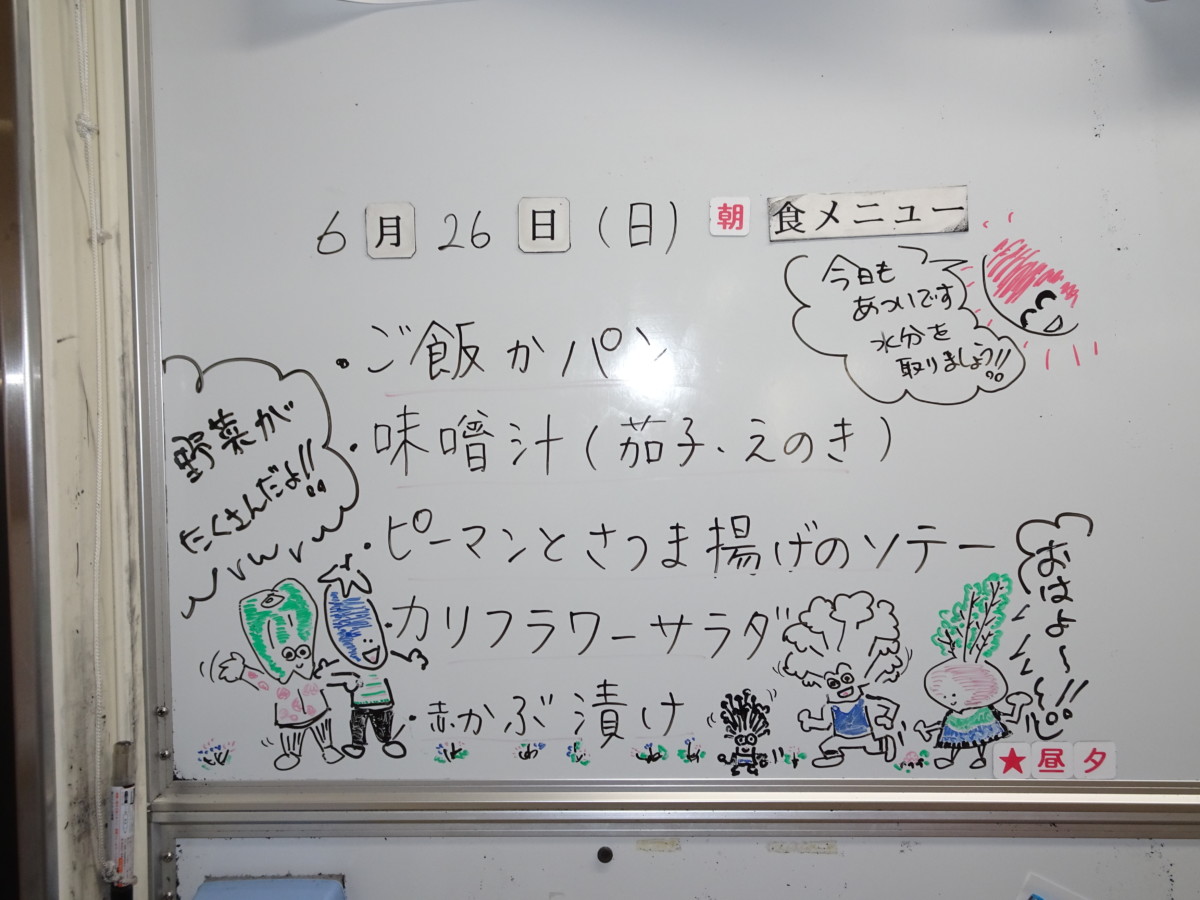 6月26日(日) 朝食メニュー
今日も
あついです
水分を
取りましょう!!
・ご飯かパン
・味噌汁(茄子、えのき)
・ピーマンとさつま揚げのソテー
・カリフラワーサラダ
・赤かぶ漬け
野菜が
たくさんだよ!!
おはよ~!!
★昼夕